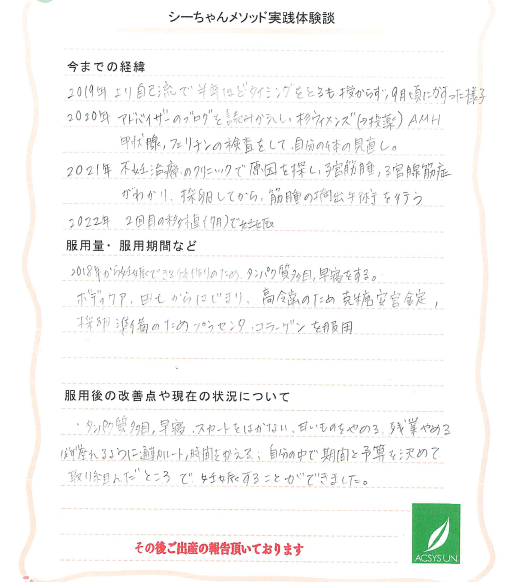 シーちゃんメソッド実践体験談
今までの経緯
2019年より自己流で半年ほどタイミングをとるも授からず、9月頃に
2020年 アドバイザーのブログを読み AMH
甲状腺、フェリチンの検査をして、自分の体の見直し。
2021年 不妊治療のクリニックで原因を探し、子宮筋腫、子宮腺筋症
がわかり、採卵してから、筋腫の摘出手術を行う
2022年 2回目の移植(7月)で妊娠
服用量・服用期間など
2018年から妊娠できる体作りのため、タンパク質多目、早寝をする。
ボディケア、 からはじまり、高令出のため
採卵準備のためプラセンタ、コラーゲンを服用
服用後の改善点や現在の状況について
・タンパク質多目、早寝、スカートをはかない、甘いものをやめる、残業やめる
座れるように通勤ルート、時間をかえる、自分の中で期間と予算を決めて
取り組んだところで、妊娠することができました。
その後ご出産の報告頂いております
ACSYSUN